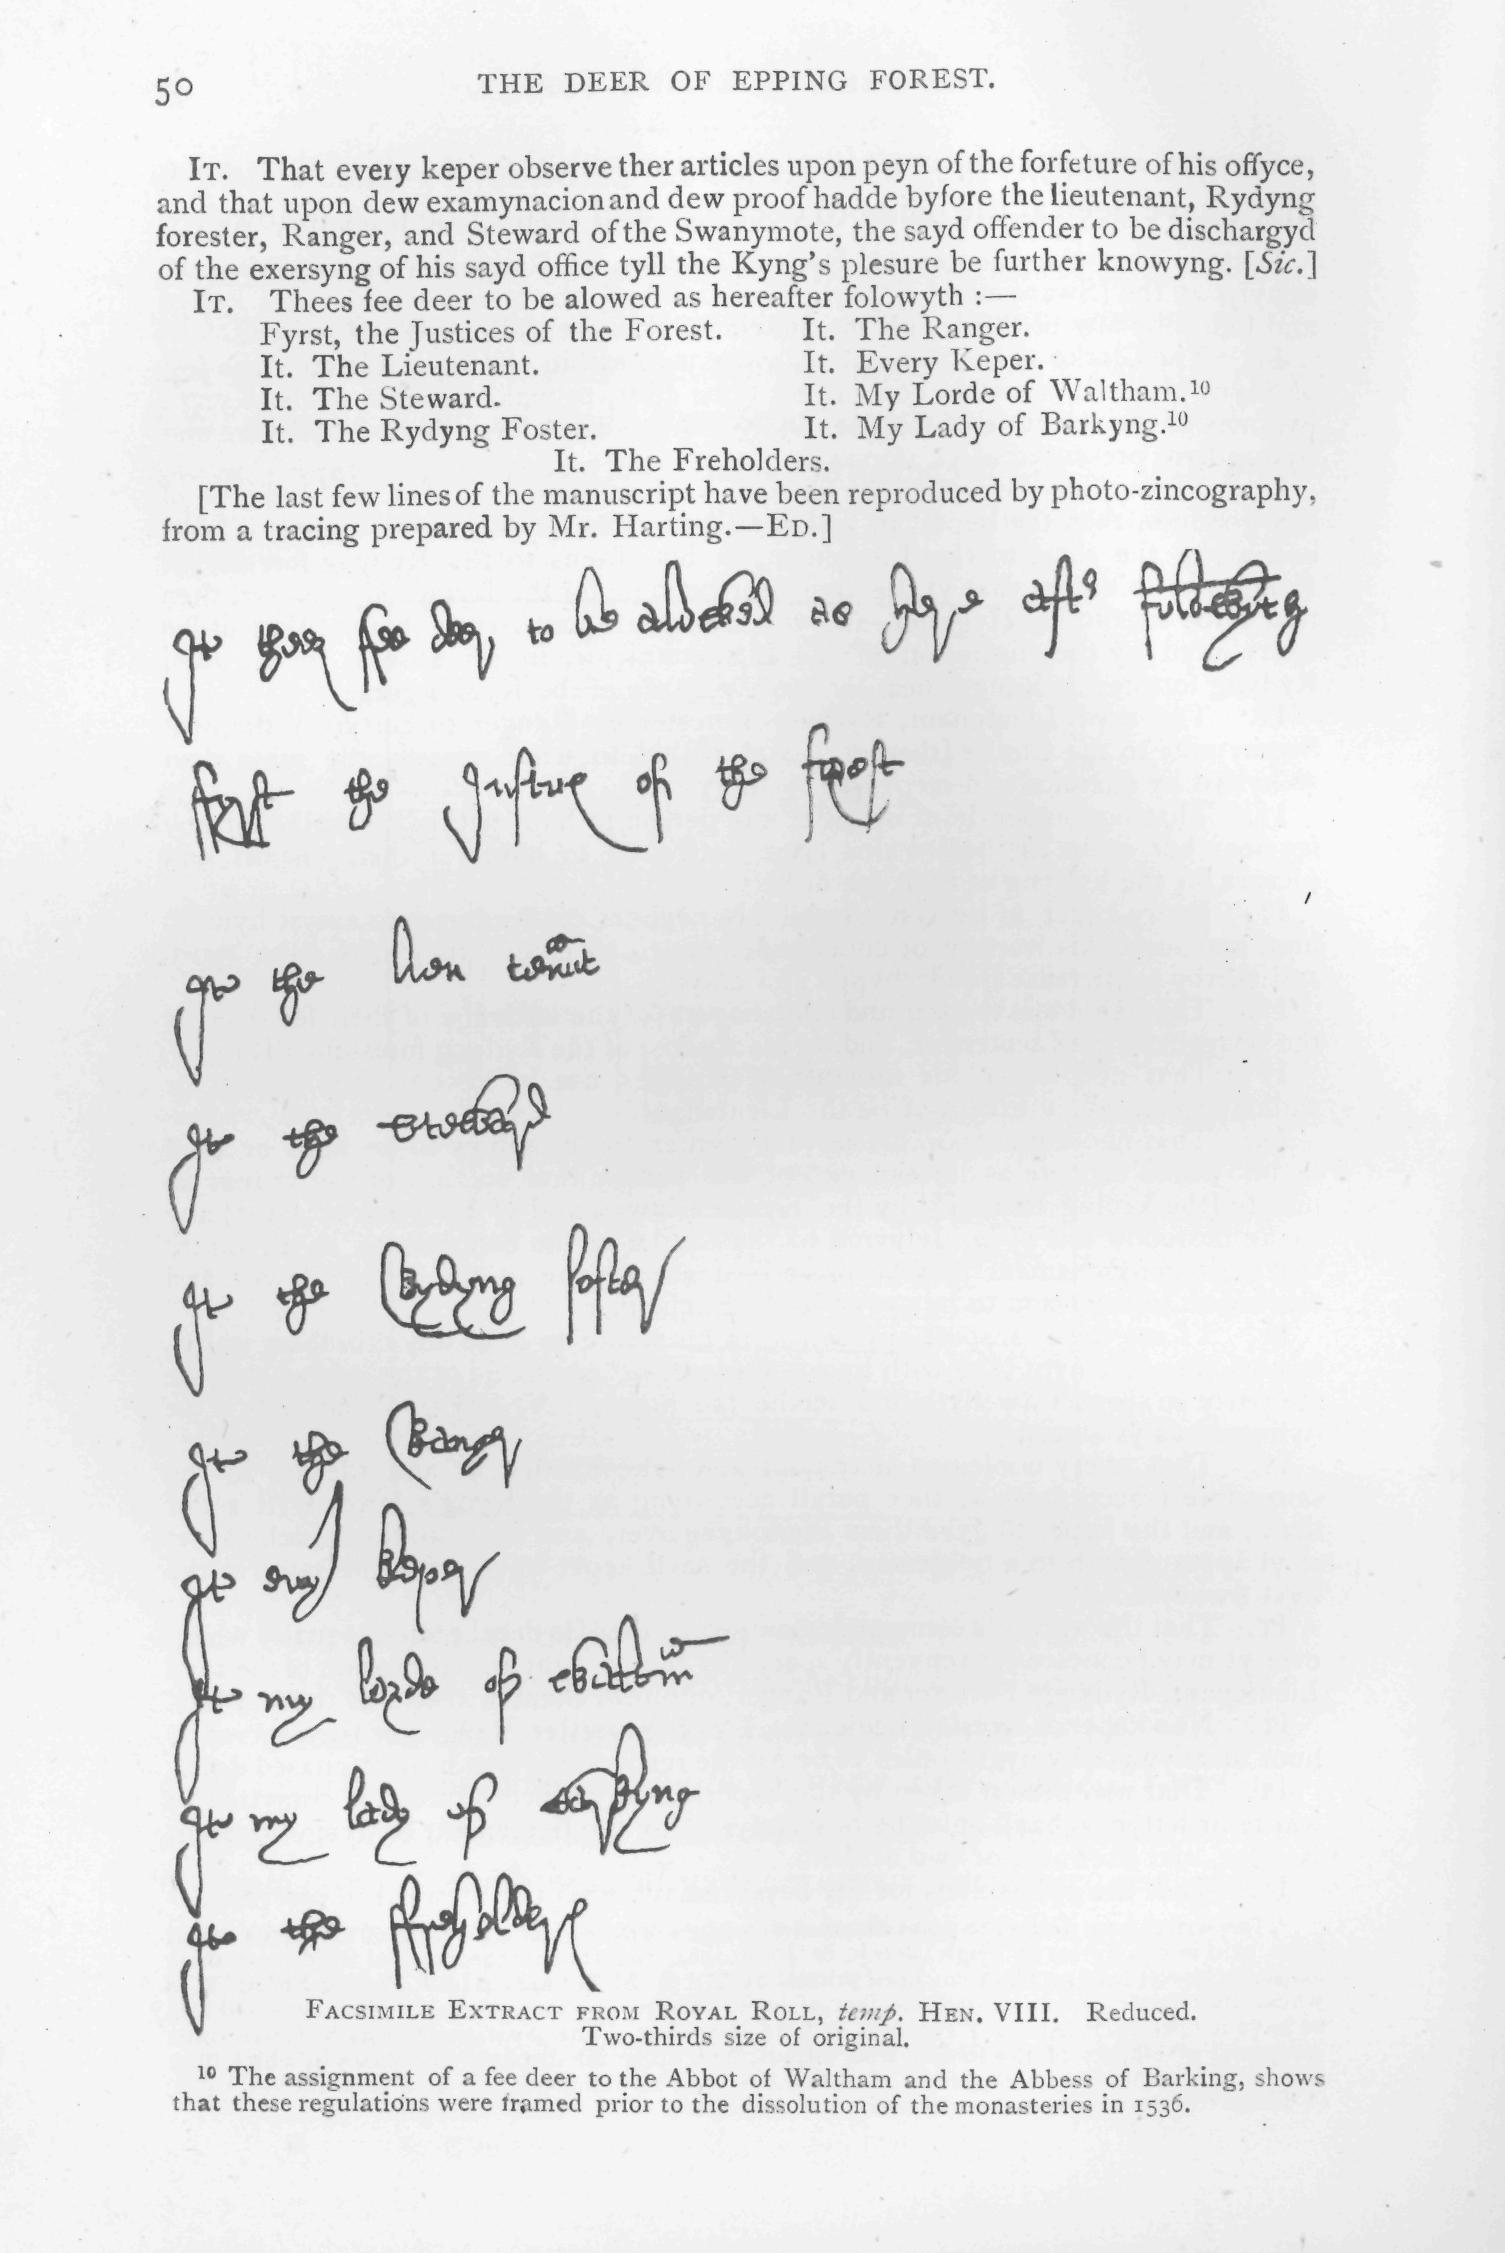 50 THE DEER OF EPPING FOREST.
IT. That every keper observe ther articles upon peyn of the forfeture of his offyce,
and that upon dew examynacion and dew proof hadde byfore the lieutenant, Rydyng
forester, Ranger, and Steward of the Swanymote, the sayd offender to be dischargyd
of the exersyng of his sayd office tyll the Kyng's plesure be further knowyng. [Sic.]
IT. Thees fee deer to be alowed as hereafter folowyth :—
Fyrst, the Justices of the Forest. It. The Ranger.
It. The Lieutenant. It. Every Keper.
It. The Steward. It. My Lorde of Waltham.¹⁰
It. The Rydyng Foster. It. My Lady of Barkyng.¹⁰
It. The Freholders.
[The last few lines of the manuscript have been reproduced by photo-zincography,
from a tracing prepared by Mr. Harting.—ED.]
It thees fee deer to be alowed as here aft
the of the forest
It the
It the steward
It the Rydyng foster
It the Ranger
It Keper
It my lorde of
It my lady of barkyng
It the
FACSIMILE EXTRACT FROM ROYAL ROLL, temp. HEN. VIII. Reduced.
Two-thirds size of original.
¹⁰ The assignment of a fee deer to the Abbot of Waltham and the Abbess of Barking, shows
that these regulations were framed prior to the dissolution of the monasteries in 1536.